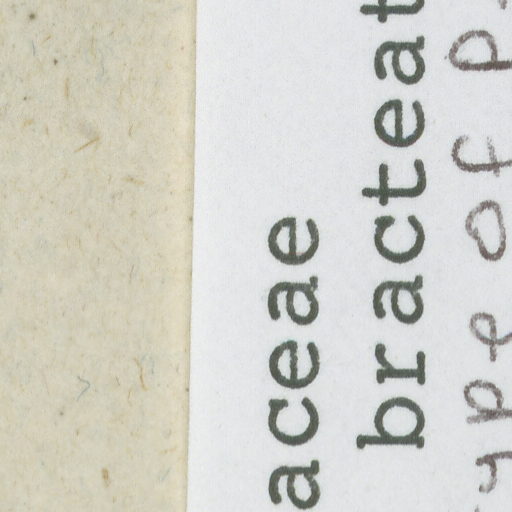 aceae
bracteat
ype of P